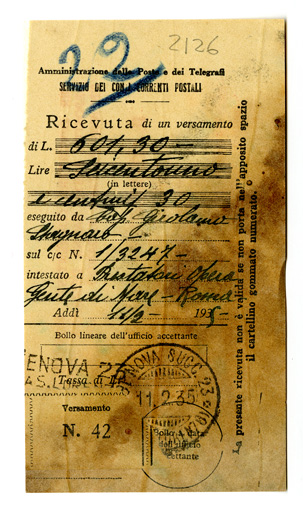 22
2126
Amministrazione delle Poste e dei Telegrafi
SERVIZIO DEI CONTI CORRENTI POSTALI
Ricevuta di un versamento
di L. 601,30
Lire Seicentouno
(in lettere)
e centesimi 30
eseguito da Cap. Girolamo
sul c/c N. 1/3247
intestato a Opera
Gente di Mare - Roma
Addì 11/2 1935
Bollo lineare dell'ufficio accettante
GENOVA 23
Tassa di L.
GENOVA SUCC. 23
11.2.35
Versamento
N. 42
Bollo a data
dell'ufficio
accettante
La presente ricevuta non è valida se non porta nell'apposito spazio
il cartellino gommato numerato.